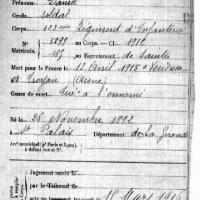 Prénoms
Grade soldat
Corps 123me Régiment d'Infanterie
N° 5899 au Corps. — Cl. 1912
Matricule. 157 au Recrutement de Saintes
Mort pour la France le 13 Avril 1915 à
et Troyon (Aisne)
Genre de mort Tué à l'ennemi
Né le 25 novembre 1892
à St Palais Département de la Gironde
Arrt municipal (pr Paris et Lyon),
à défaut rue et N°.
Jugement rendu le
par le Tribunal de
acte ou jugement transcrit le 15 Mars 1916